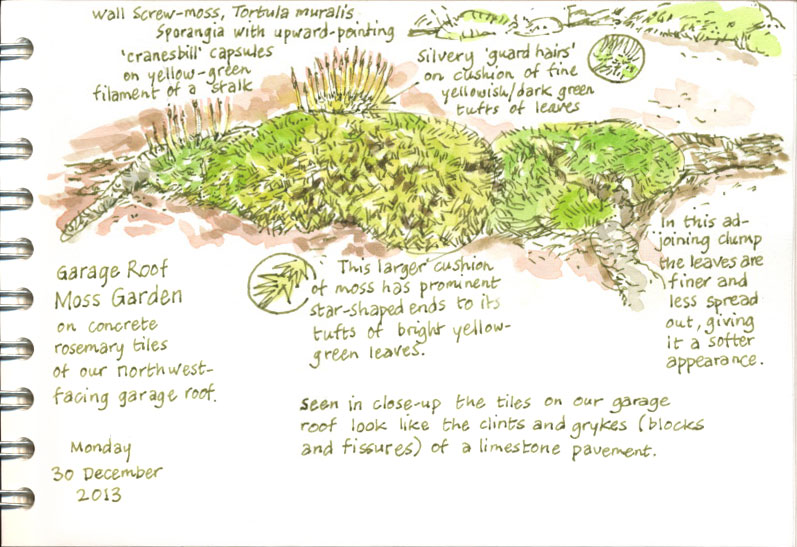 Wall Screw-moss, Tortula muralis
Sporangia with upward-pointing
'cranesbill' capsules
on yellow-green
filament of a stalk
Silvery 'guard hairs'
on cushion of fine
yellowish/dark green
tufts of leaves
In this ad-
joining clump
the leaves are
finer and
less spread
out, giving
it a softer
appearance.
This larger cushion
of moss has prominent
star-shaped ends to its
tufts of bright yellow-
green leaves.
Garage Roof
Moss Garden
on concrete
rosemary tiles
of our northwest-
facing garage roof.
Seen in close-up the tiles on our garage
roof look like the clints and grykes (blocks
and fissures) of a limestone pavement.
Monday
30 December
2013